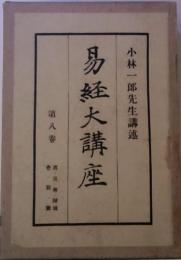 小林一郎先生講述
易経大講座
第八巻